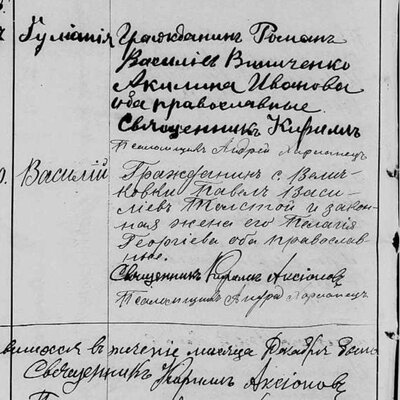 Іулианія Гражданинъ Романъ
Василіев Винниченко
Акилина Иванова
оба православные.
Священникъ Кирилъ
Псаломщикъ Андрей
Василій Гражданинъ с Велич-
ковки Павелъ Васи-
ліевъ Толстой и закон-
ная жена его Пелагія
Георгіева оба православ-
ные.
Священникъ Кирилъ Аксіоновъ
Псаломщикъ Андрей
въ теченіе месяца
Священникъ Кирилъ Аксіоновъ